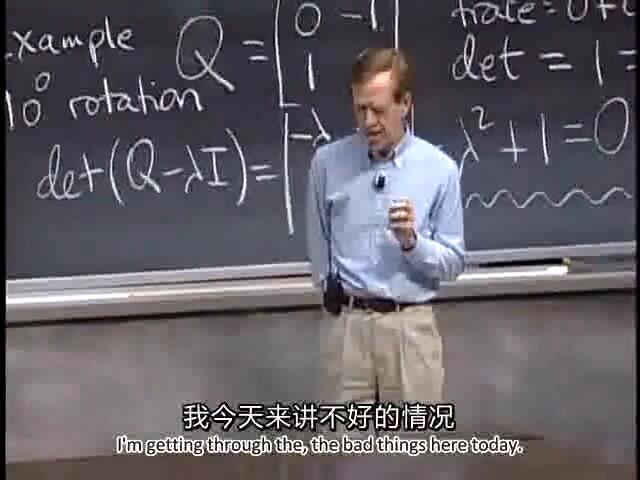 example
rotation
Q = [0 -1
1
det(Q-λI) = |-λ
det = 1 =
λ²+1=0
我今天来讲不好的情况
I'm getting through the, the bad things here today.